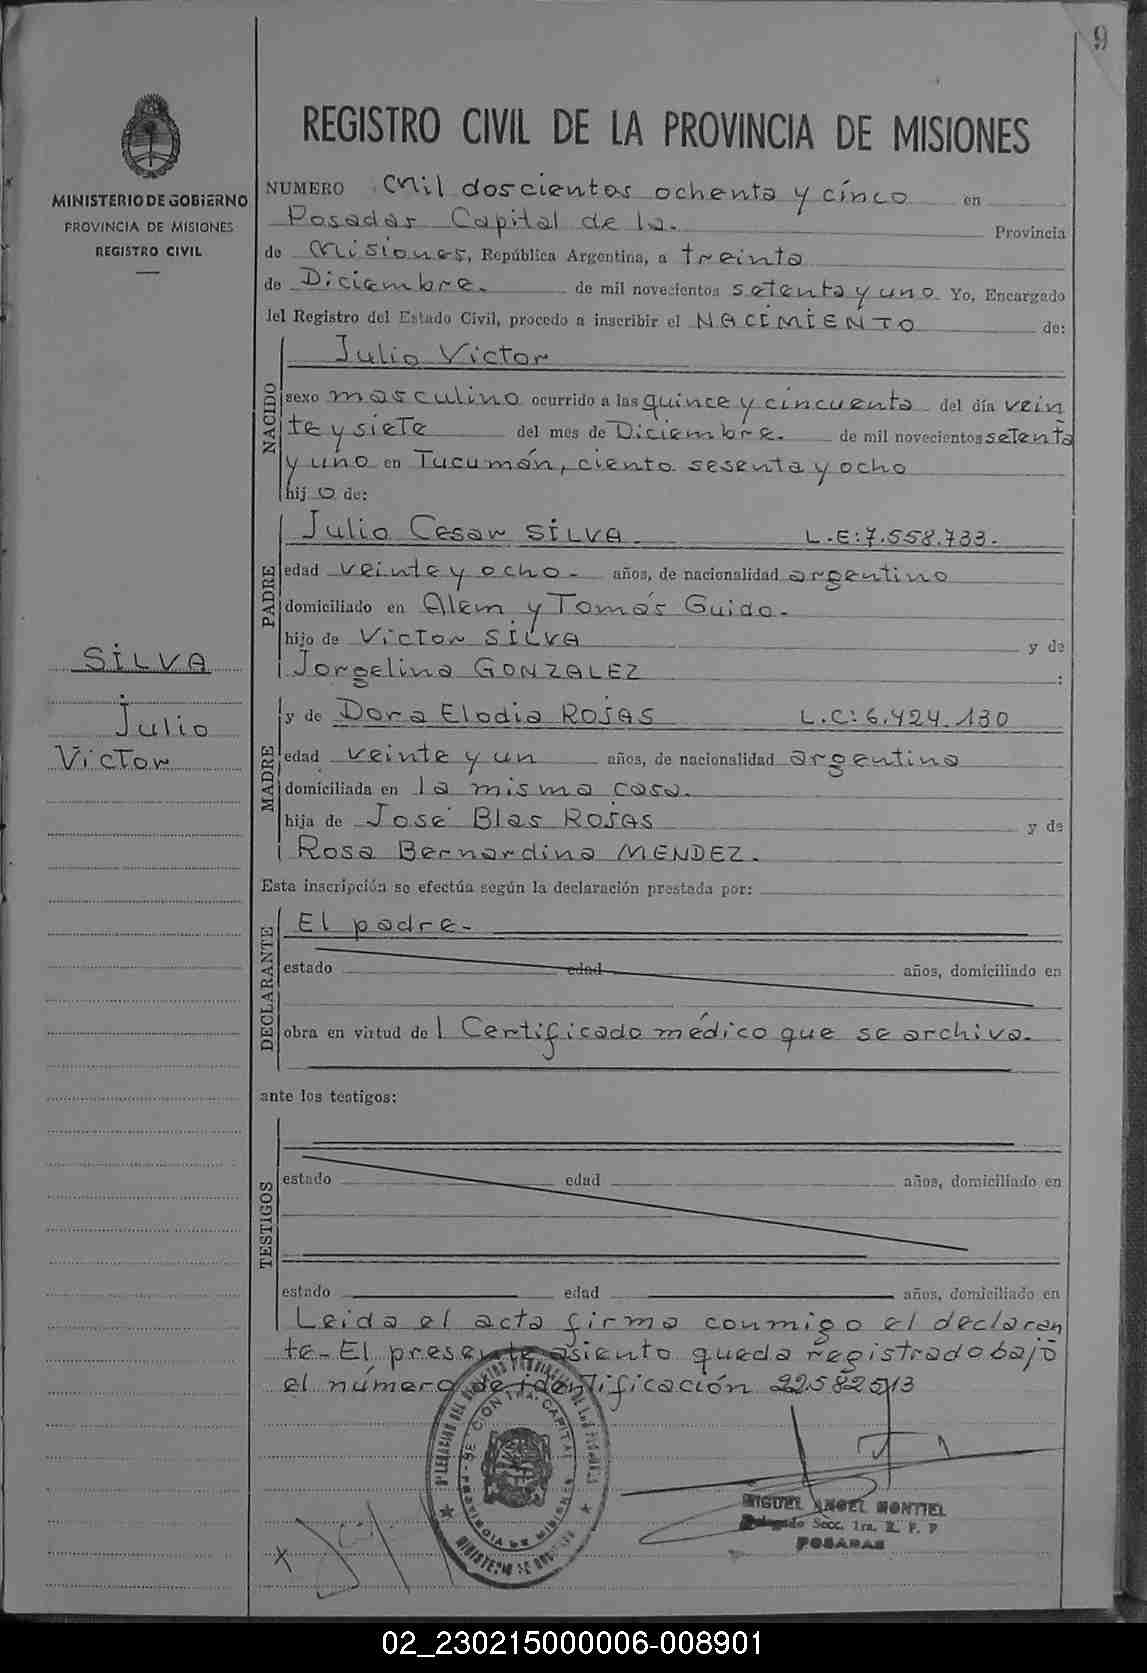 9
REGISTRO CIVIL DE LA PROVINCIA DE MISIONES
MINISTERIO DE GOBIERNO
PROVINCIA DE MISIONES
REGISTRO CIVIL
NUMERO Mil doscientos ochenta y cinco en
Posadas Capital de la. Provincia
de Misiones, República Argentina, a treinta
de Diciembre. de mil novecientos setenta y uno. Yo, Encargado
del Registro del Estado Civil, procedo a inscribir el NACIMIENTO de:
Julio Victor
NACIDO
sexo masculino ocurrido a las quince y cincuenta del día vein
te y siete del mes de Diciembre. de mil novecientos setenta
y uno en Tucumán, ciento sesenta y ocho
hij o de:
Julio Cesar SILVA. L.E:7.558.733.
PADRE
edad veinte y ocho- años, de nacionalidad argentino
domiciliado en Alem y Tomás Guido-
hijo de Victor SILVA y de
Jorgelina GONZALEZ :
SILVA
Julio
Victor
y de Dora Elodia ROJAS L.C:6.424.130
MADRE
edad veinte y un años, de nacionalidad argentina
domiciliada en la misma casa.
hija de José Blas ROJAS y de
Rosa Bernardina MENDEZ.
Esta inscripción se efectúa según la declaración prestada por:
El padre-
DECLARANTE
estado edad años, domiciliado en
obra en virtud de 1 Certificado médico que se archiva.
ante los testigos:
TESTIGOS
estado edad años, domiciliado en
estado edad años, domiciliado en
Leida el acta firma conmigo el declaran
te- El presente asiento queda registrado bajo
el número de identificación 22.582.513
SECCION 1ra. CAPITAL
PROVINCIA DE MISIONES
MINISTERIO DE GOBIERNO
MIGUEL ANGEL MONTIEL
Delegado Secc. 1ra. R. P. P
POSADAS
X
02_230215000006-008901